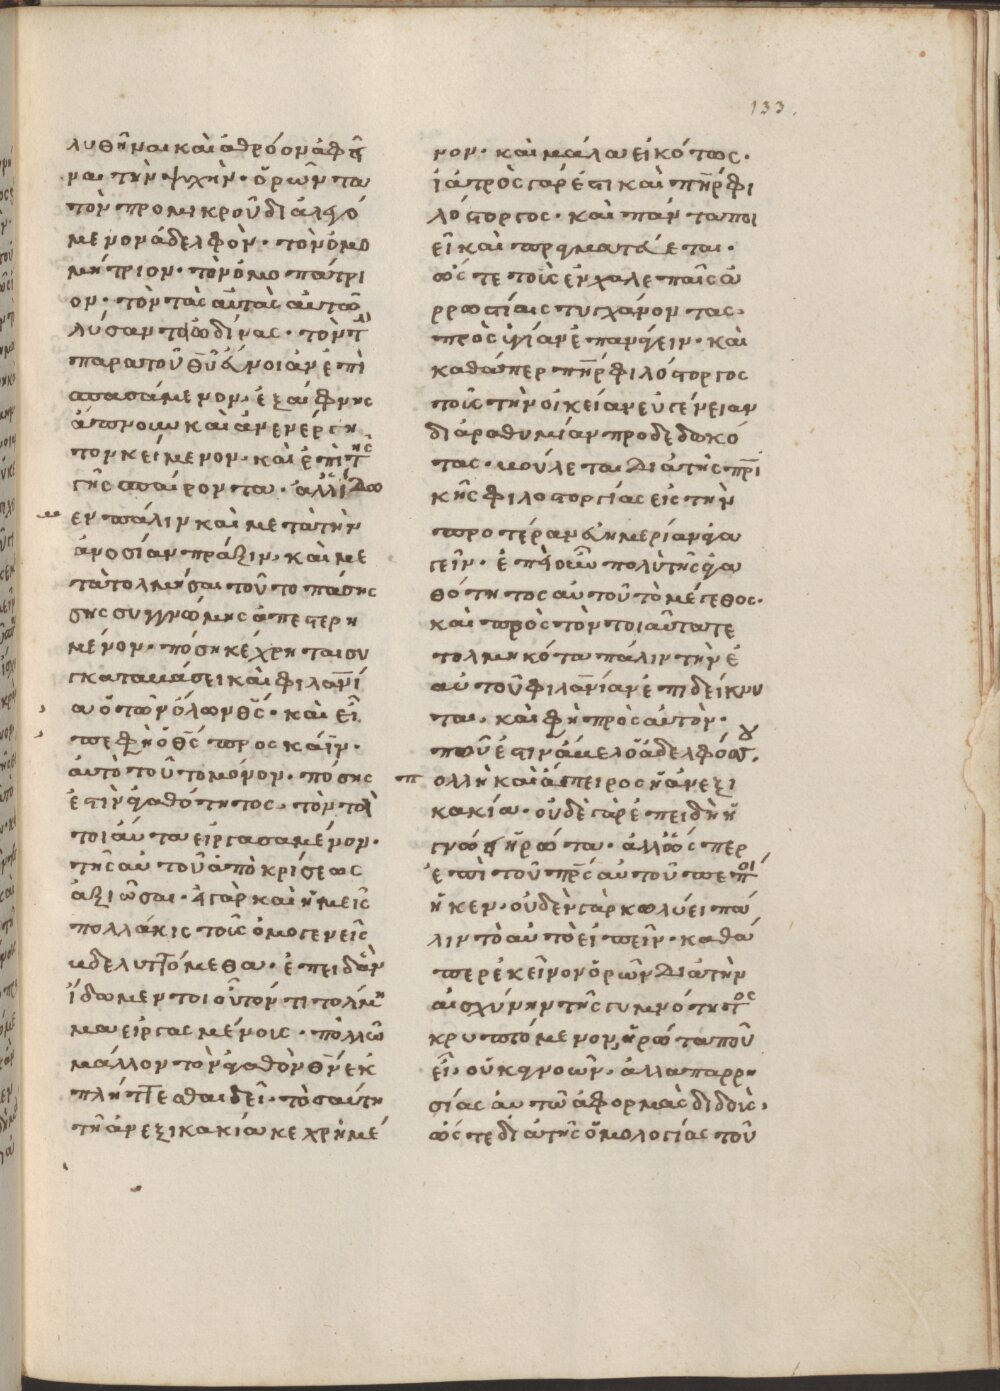 133.
λυθῆναι καὶ ἀθρόον ἀφεῖ
ναι τὴν ψυχὴν· ὁρῶντα
τὸν πρὸ μικροῦ διαλεγό
μενον ἀδελφὸν· τὸν ὁμο
μήτριον· τὸν ὁμοπάτρι
ον· τὸν τὰς αὐτὰς αὐτῶ
λύσαντα ὠδίνας· τὸν τ
παρὰ τοῦ θῦ εὔνοιαν ἐπι
σπασάμενον, ἐξαίφνης
ἄπνουν καὶ ἀνενέργη
τον κείμενον· καὶ ἐπὶ τῆς
γῆς σπαίροντα· ἀλλ ἴδω
μεν πάλιν καὶ μετὰ τὴν
ἀνοσίαν πρᾶξιν, καὶ με
τὰ τὸ λμῆσαι τοῦτο πάσης
σης συγγνώμης ἀπεστερη
μένον· πόση κέχρηται συ
γκαταβάσει καὶ φιλανία
α ὁ τῶν ὅλων θς· καὶ εἶ
πε φη ὁ θς προς κάϊν·
αὐτὸ τοῦτο μόνον· πόσης
ἐστὶν ἀγαθότητος, τὸν τὰ
τοιαύτα εἰργασαμένον·
τῆς αὐτοῦ ἀποκρίσεως
ἀξιῶσαι· εἰ γὰρ καὶ ἡμεῖς
πολλάκις τοῖς ὁμογενεῖς
βδελυττόμεθα· ἐπειδὰν
ἴδωμεν τοιοῦτόν τι τολμη
μα εἰργασμένοις· πολλῶ
μάλλον τὸν ἀγαθὸν θν ἐκ
πλήττεσθαι δεῖ· τοσαύτη
τῆ ἀνεξικακία κεχρημέ
νον· καὶ μάλα εἰκότως·
ἰατρὸς γάρ ἐστι καὶ πηρ φι
λόστοργος· καὶ πάντα ποι
εῖ καὶ πραγματεύεται·
ὥστε τοὺς ἐν χαλεπαῖς ἀ
ρρωστίαις τυγχάνοντας
πρὸς ὑγίαν ἐπανάγειν· καὶ
καθάπερ πηρ φιλόστοργος
τοὺς τὴν οἰκείαν εὐγένειαν
διὰ ραθυμίαν προδεδωκό
τας· βούλεται διὰ τῆς πρι
κῆς φιλοστοργίας εἰς τὴν
προτέραν εὐημερίαν ἀγα
γεῖν· ἐπεὶ οὖν πολὺ τῆς ἀγα
θότητος αὐτοῦ τὸ μέγεθος·
καὶ πρὸς τὸν τοιαῦτα τε
τολμηκότα πάλιν τὴν ἑ
αυτοῦ φιλανίαν ἐπιδείκνυ
ται, καὶ φὴ πρὸς αὐτὸν·
ποῦ ἐστιν ἄμελ ὁ ἀδελφός σου.
πολλὴ καὶ ἄπειρος ἡ ἀνεξι
κακία· οὐδὲ γὰρ ἐπειδὴ ἠ
γνόει ἠρώτα· ἀλλ ὥσπερ
ἐπὶ τοῦ πρς αὐτοῦ πεποί
ηκεν· οὐδὲν γὰρ κωλύει πά
λιν τὸ αὐτὸ εἰπεῖν· καθά
περ ἐκεῖνον ὁρῶν διὰ τὴν
αἰσχύνην τῆς γυμνότητος
κρυπτόμενον, ἠρώτα ποῦ
εἶ, οὐκ ἀγνοῶν· ἀλλὰ παρρη
σίας αὐτῶ ἀφορμὰς διδοὺς,
ὥστε διὰ τῆς ὁμολογίας τοῦ